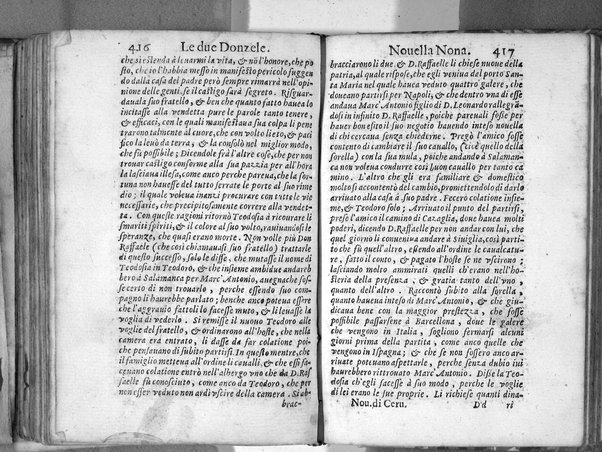 416 Le due Donzele.
che si estenda à leuarmi la vita, & nò l'honore, che po
sto, che io l'habbia messo in manifesto pericolo fuggen
do dalla casa del padre però sempre rimarrà nell'opi
nione delle genti, se il castigo sarà segreto. Risguar
dauala suo fratello, & ben che quanto fatto hauea lo
incitasse alla vendetta pure le parole tanto tenere,
& efficaci, con le quali manifestaua sua colpa li pene
trarono talmente al cuore, che con volto lieto, & paci
fico la leuò da terra, & la consolò nel miglior modo,
che fù possibile; Dicendole frà l'altre cose, che per non
trouar castigo conforme alla sua pazzia per all'hora
la lasciaua illesa, come anco perche pareua, che la for
tuna non hauesse del tutto serrate le porte al suo rime
dio; il quale voleua inanzi procurare con tutte le vie
necessarie, che precipitosamente correre alla vendet-
ta. Con queste ragioni ritornò Teodosia à ricourare li
smarriti spiriti, & il colore al suo volto, rauiuandosi le
speranze, che quasi erano morte. Non volle più Don
Raffaelle (che così chiamauasi suo fratello) trattarle
di questo successo, solo le disse, che mutasse il nome di
Teodosia in Teodoro, & che insieme ambidue andareb
bero à Salamanca per Marc'Antonio, auegnache sos-
secerio di non trouarlo, perche essendo suo com-
pagno li haurebbe parlato; benche anco poteua essere
che l'aggrauio fattoli lo facesse muto, & li leuasse la
voglia di vederlo. Si remisse il nuouo Teodoro alle
voglie del fratello, & ordinarono all'hoste, che nella
camera era entrato, li dasse da far colatione poi
che pensauano di subito partirsi. In questo mentre, che
il famiglio metteua all'ordine li caualli, & che essi fa-
ceuano colatione entrò nell'albergo vno che da D. Raf
faelle fù conosciuto, come anco da Teodoro, che per
non esser veduto non ardì vscire della camera. Si ab-
brac-
Nouella Nona. 417
bracciarono li due, & D. Raffaelle li chiese nuoue della
patria, al quale rispose, che egli veniua del porto San-
ta Maria nel quale hauea vedute quattro galere, che
doueano partirsi per Napoli, & che dentro vna di esse
andaua Marc'Antonio figlio di D. Leonardo rallegrã-
dosi in infinito D. Raffaelle, poiche pareuali fosse per
hauer bon esito il suo negotio hauendo inteso nouella
di chi cercaua senza chiederne. Pregò l'amico fosse
contento di cambiare il suo cauallo, (cioè quello della
sorella) con la sua mula, poiche andando à Salaman-
ca non voleua condurre così buon cauallo per tanto ca
mino. L'altro che gli era familiare & domestico
molto si accontentò del cambio, promettendolo di darlo
arriuato alla casa à suo padre. Fecero colatione insie-
me, & Teodoro solo; Arriuato il punto del partirsi,
prese l'amico il camino di Cazaglia, doue hauea molti
poderi, dicendo D. Raffaelle per non andar con lui, che
quel giorno li conueniua andare à Siuiglia, così parti-
to che fù quell'altro, essendo all'ordine le caualcatu-
re, fatto il conto, & pagato l'hoste se ne vscirono;
lasciando molto ammirati quelli ch'erano nell'ho-
steria della presenza, & gratia tanto dell'vno,
quanto dell'altro. Raccontò subito alla sorella,
quanto haueua inteso di Marc'Antonio, & che giu-
dicaua bene con la maggior prestezza, che fosse
possibile passarsene à Barcellona, doue le galere
che vengono in Italia, sogliono fermarsi alcuni
giorni prima della partita, come anco quelle che
vengono in Ispagna; & che se non fossero anco ar-
riuate poteuano aspettarle, perche senza dubio iui
haurebbero ritrouato Marc'Antonio. Disse la Teo-
dosia ch'egli facesse à suo modo, perche le voglie
di lei erano le sue proprie. Li richiese quanti dina-
Nou. di Ceru. Dd ri